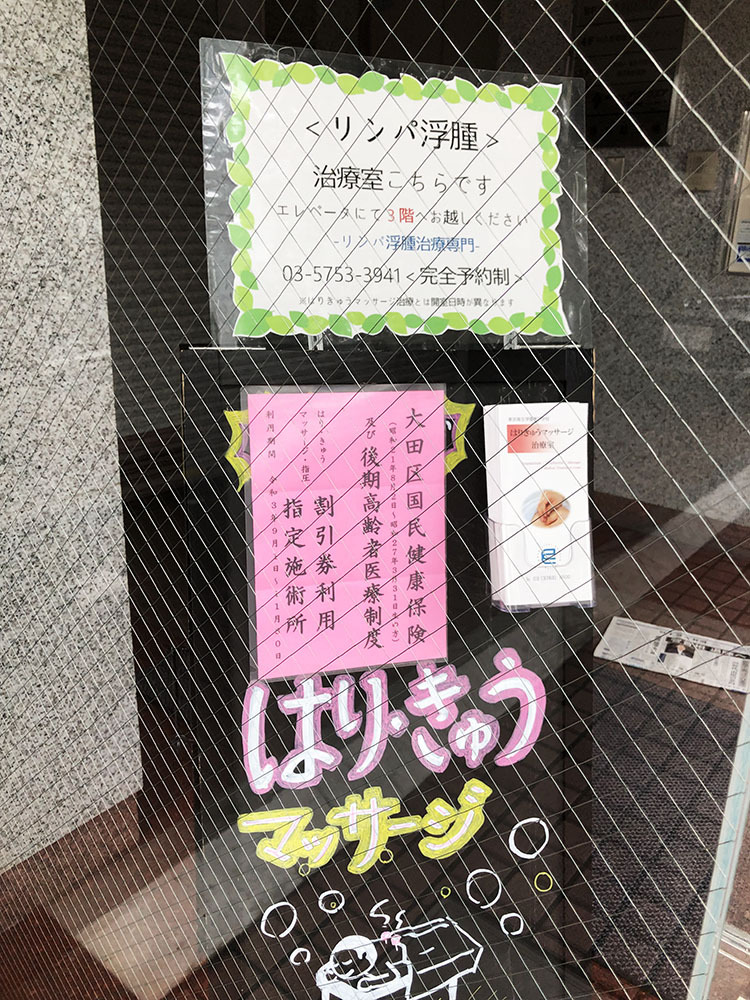 <リンパ浮腫>
治療室こちらです
エレベータにて3階へお越しください
-リンパ浮腫治療専門-
03-5753-3941<完全予約制>
※はりきゅうマッサージ治療とは開室日時が異なります
大田区国民健康保険
(昭和21年8月2日～昭和27年3月31日生の方)
及び後期高齢者医療制度
はり・きゅう
マッサージ・指圧
割引券利用
指定施術所
利用期間 令和3年9月1日～11月30日
はりきゅうマッサージ
治療室
はり・きゅう
マッサージ